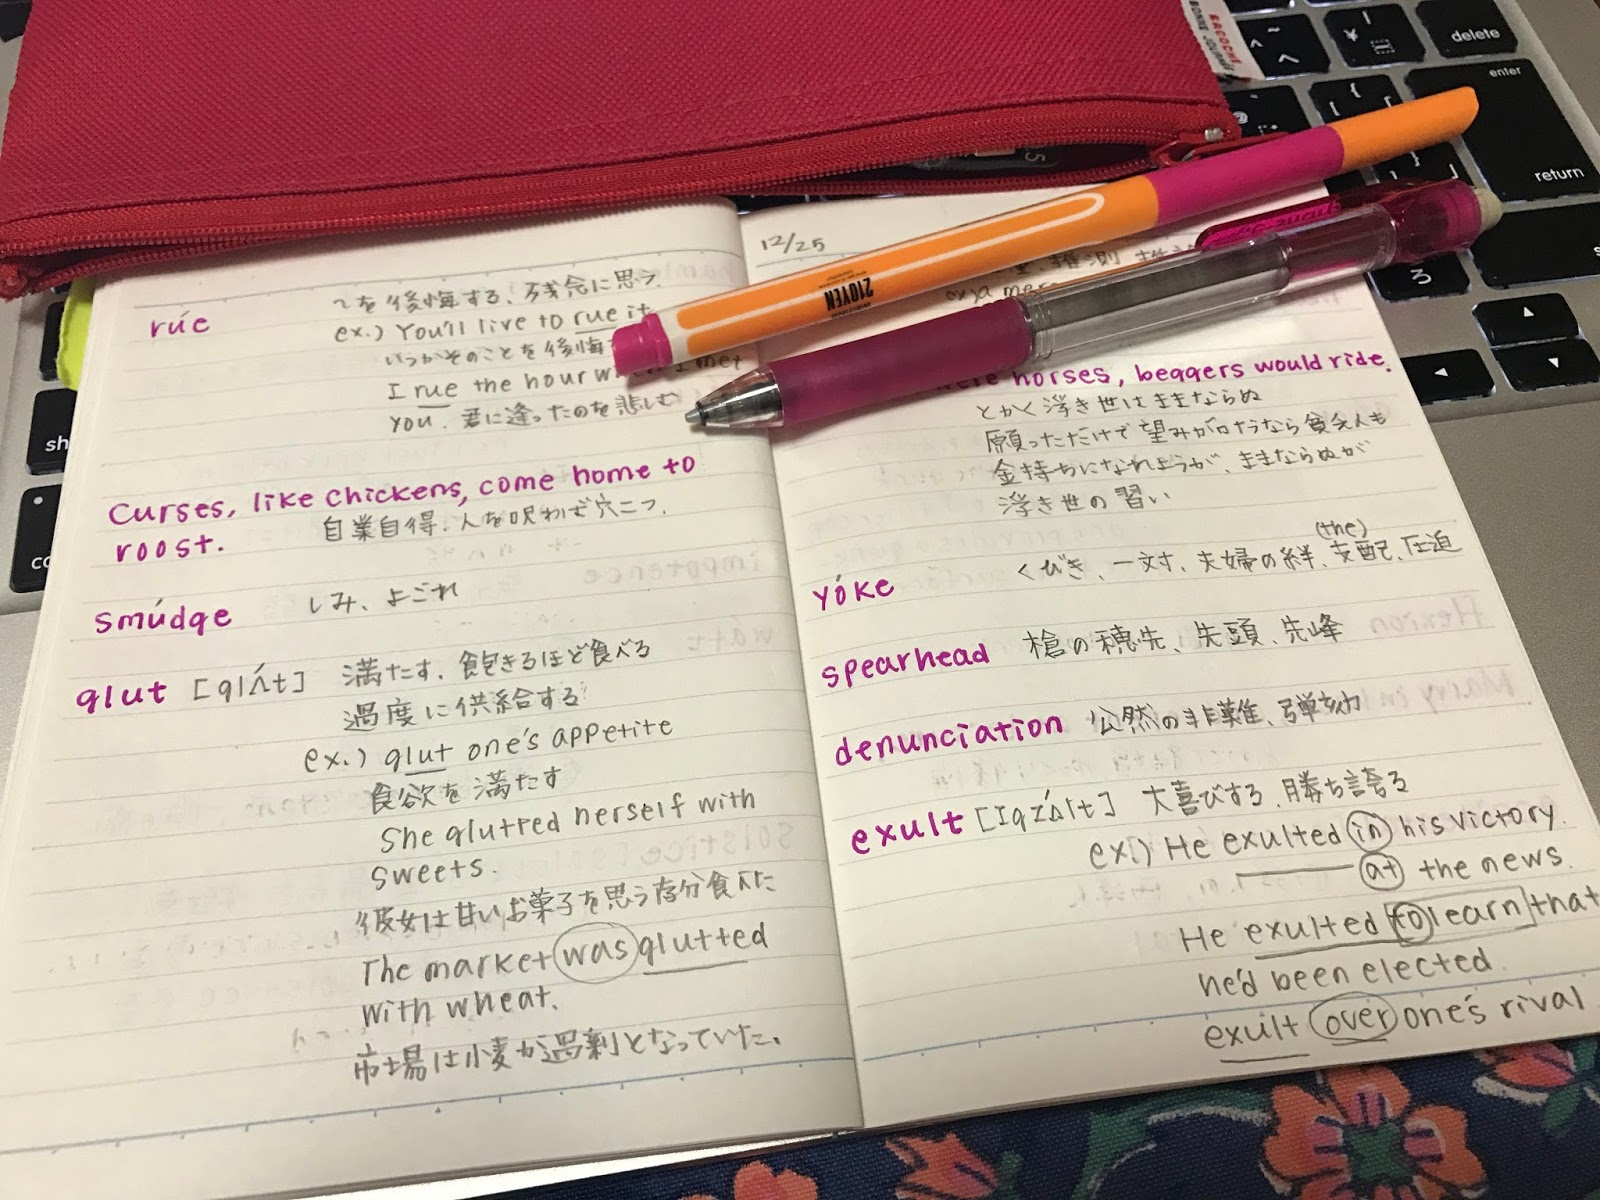 rúe
〜を後悔する、残念に思う.
ex.) You'll live to rue it
いつかそのことを後悔
I rue the hour
you. 君に逢ったのを悲しむ
Curses, like chickens, come home to
roost.
自業自得. 人を呪わば穴二つ.
smúdge
しみ、よごれ
glut [glʌ́t] 満たす、飽きるほど食べる
過度に供給する
ex.) glut one's appetite
食欲を満たす
She glutted herself with
sweets.
彼女は甘いお菓子を思う存分食べた
The market was glutted
with wheat.
市場は小麦が過剰となっていた。
12/25
推測
horses, beggers would ride.
とかく浮き世はままならぬ
願っただけで望みが叶うなら貧乏人も
金持ちになれようが、ままならぬが
浮き世の習い
(the)
yóke くびき、一対、夫婦の絆、支配、圧迫
spearhead 槍の穂先、先頭、先峰
denunciation 公然の非難、弾劾
exult [Igzʌ́lt] 大喜びする、勝ち誇る
ex.) He exulted in his victory.
at the news.
He exulted to learn that
he'd been elected.
exult over one's rival
210YEN
BACOCHE
BONNE JOURNÉE
delete
enter
return
ろ
sh